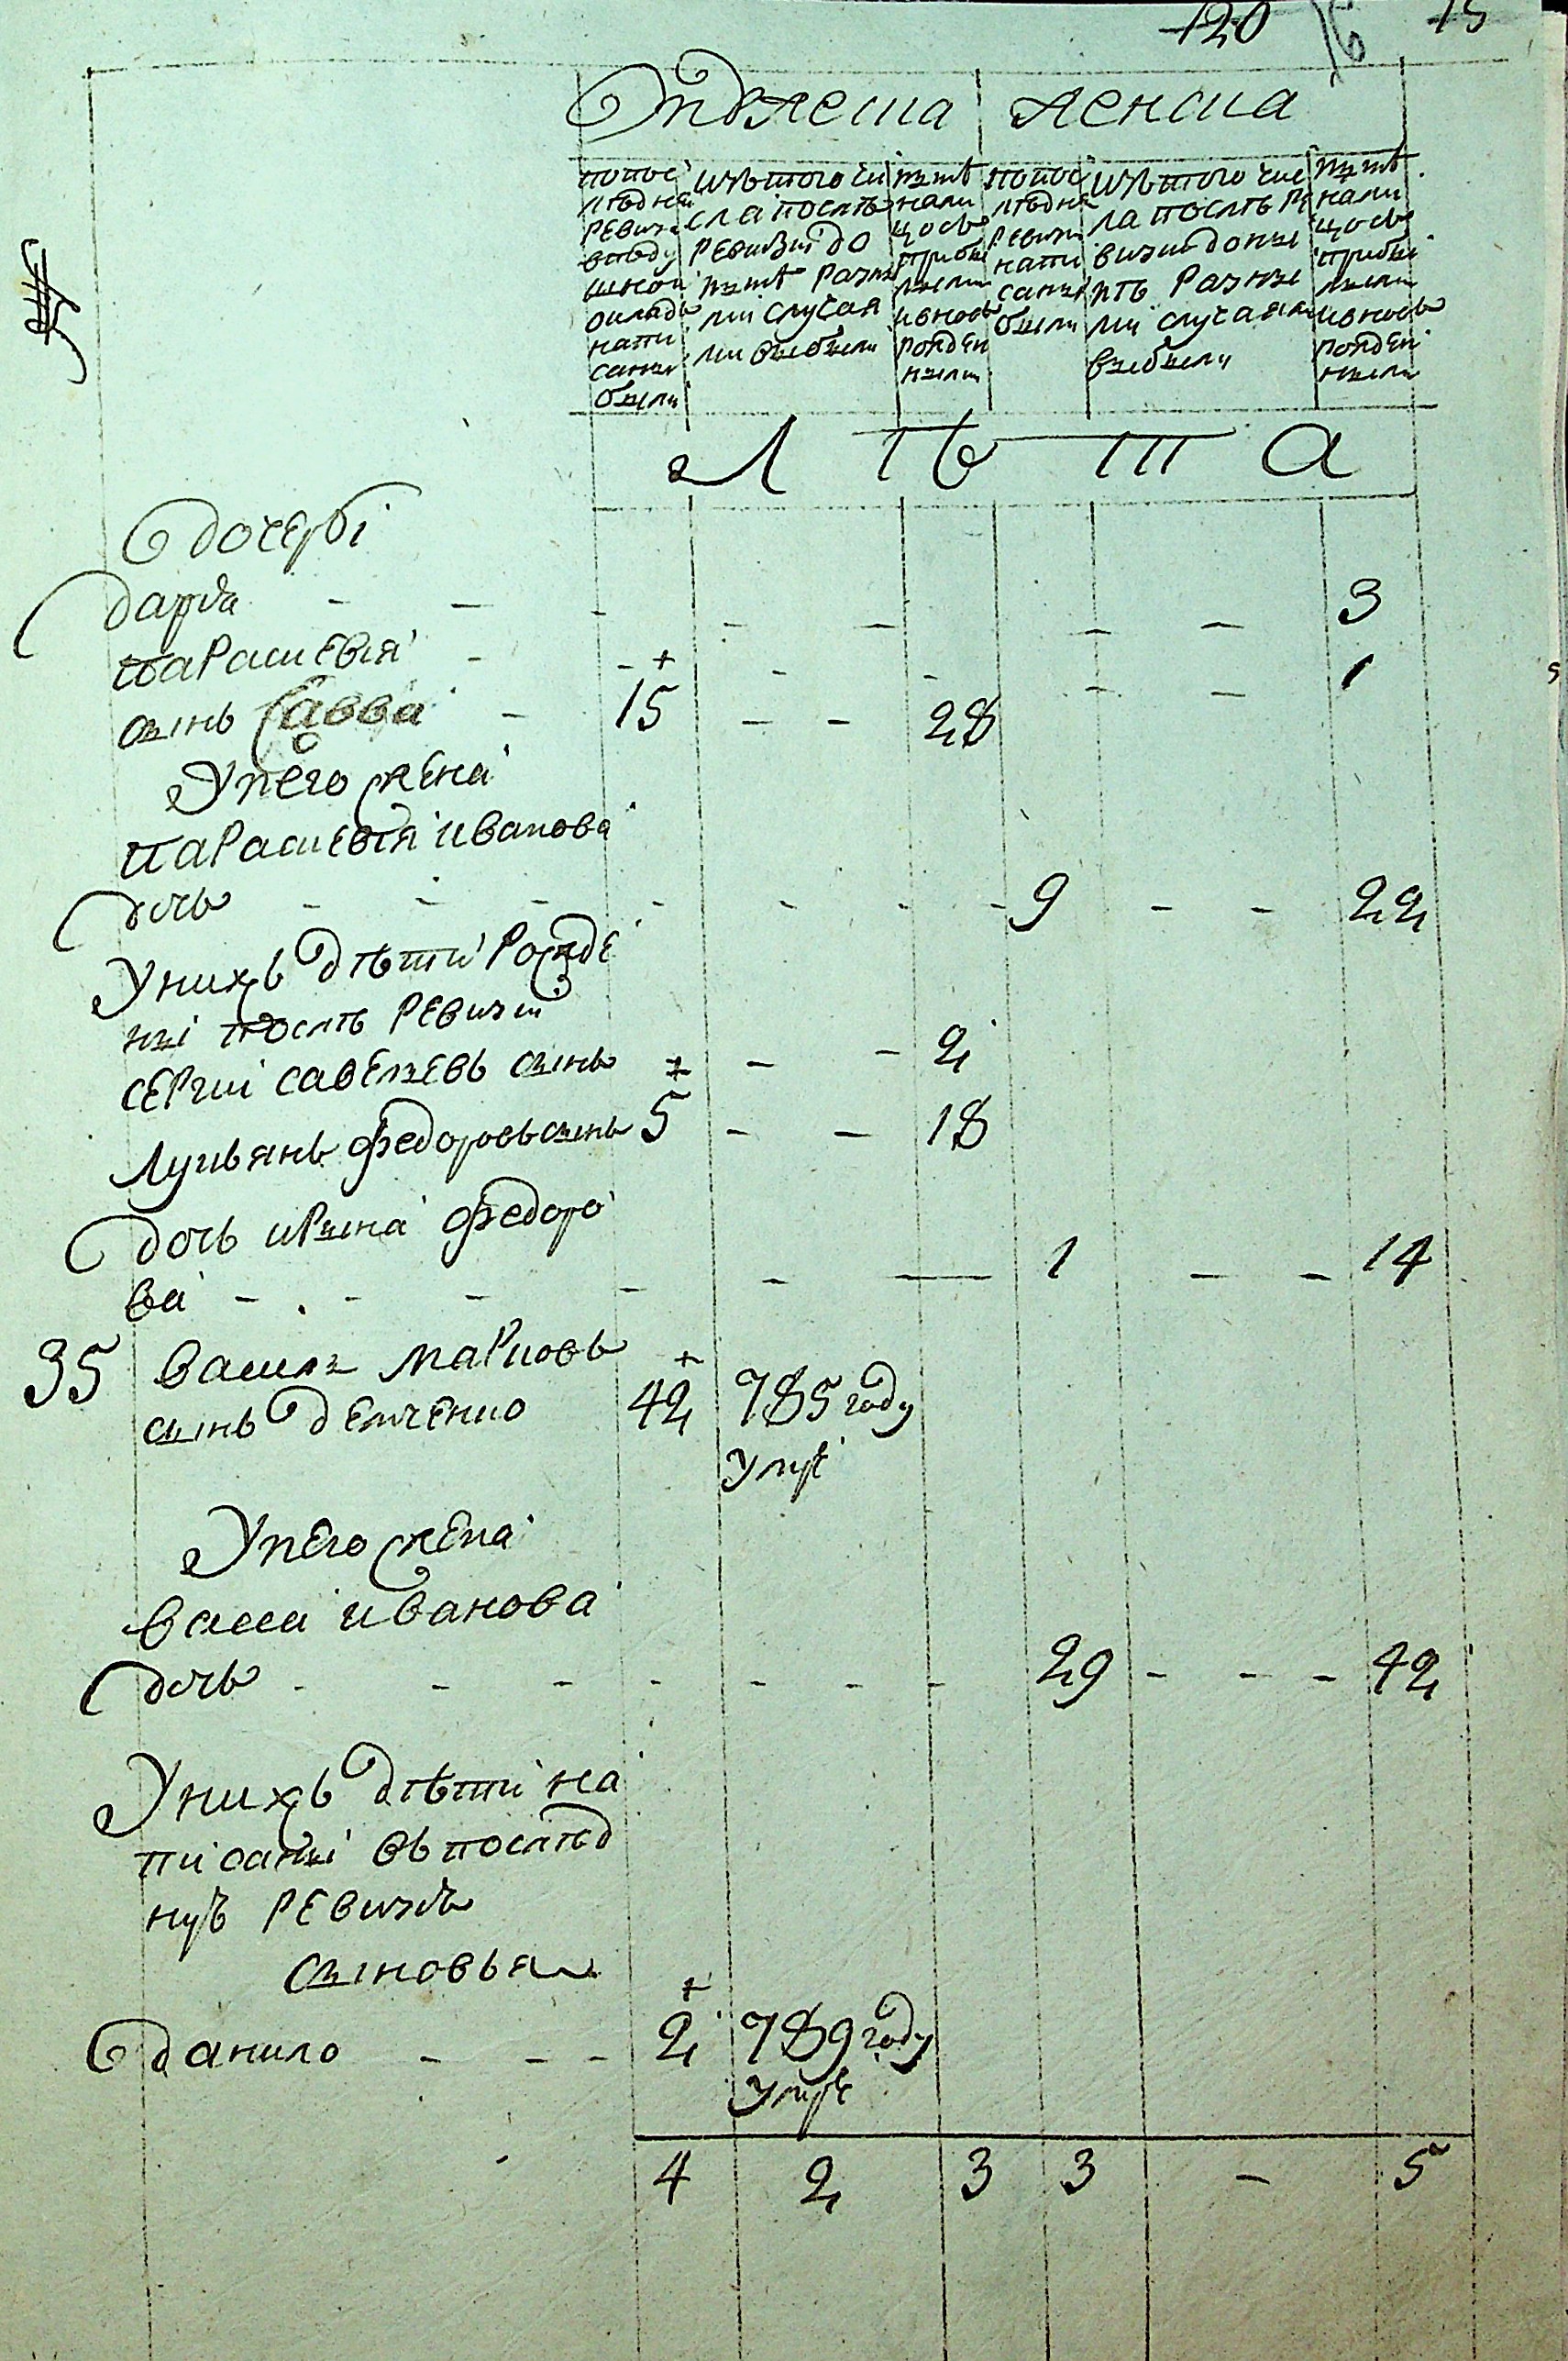 120 16 15
Мужеска женска
попос леднй ревизи вподу шной окладъ напи саны были
изътого чи сла послъ ревизиї до нынѣ разны ми случая ми выбыли
нынѣ нали цось прибы лыми ивновь рожден ными
попос ледне ревизи напи саны были
изътого чис ла послѣ ре визиї доны нѣ разны ми случаями выбыли
нынѣ нали цось прибы лыми ивновь рожден ными
Л ѣ т а
дочерѣ
дарїа - - - - - - - 3
параскевїя - - - - - - 1
сынъ Савва - 15 - - 28
Унего жена
параскевїя иванова
дочь - - - - - - - 9 - - 22
Унихъ дѣти рожде
ны послѣ ревизїи
сергїй савельевъ сынъ - - 2
Лукьянъ федоровъсынъ 5 - - 18
дочь ирына федоро
ва - - - - - - 1 - - 14
35 василь марковъ
сынъ демченко 42 785 году
умре
Унего жена
васса иванова
дочь - - - - - - - 29 - - - 42
Унихъ дѣти на
писаны въпослѣд
ную ревизїю
сыновья
данило - - - 2 789 году
умре
4 2 3 3 - 5